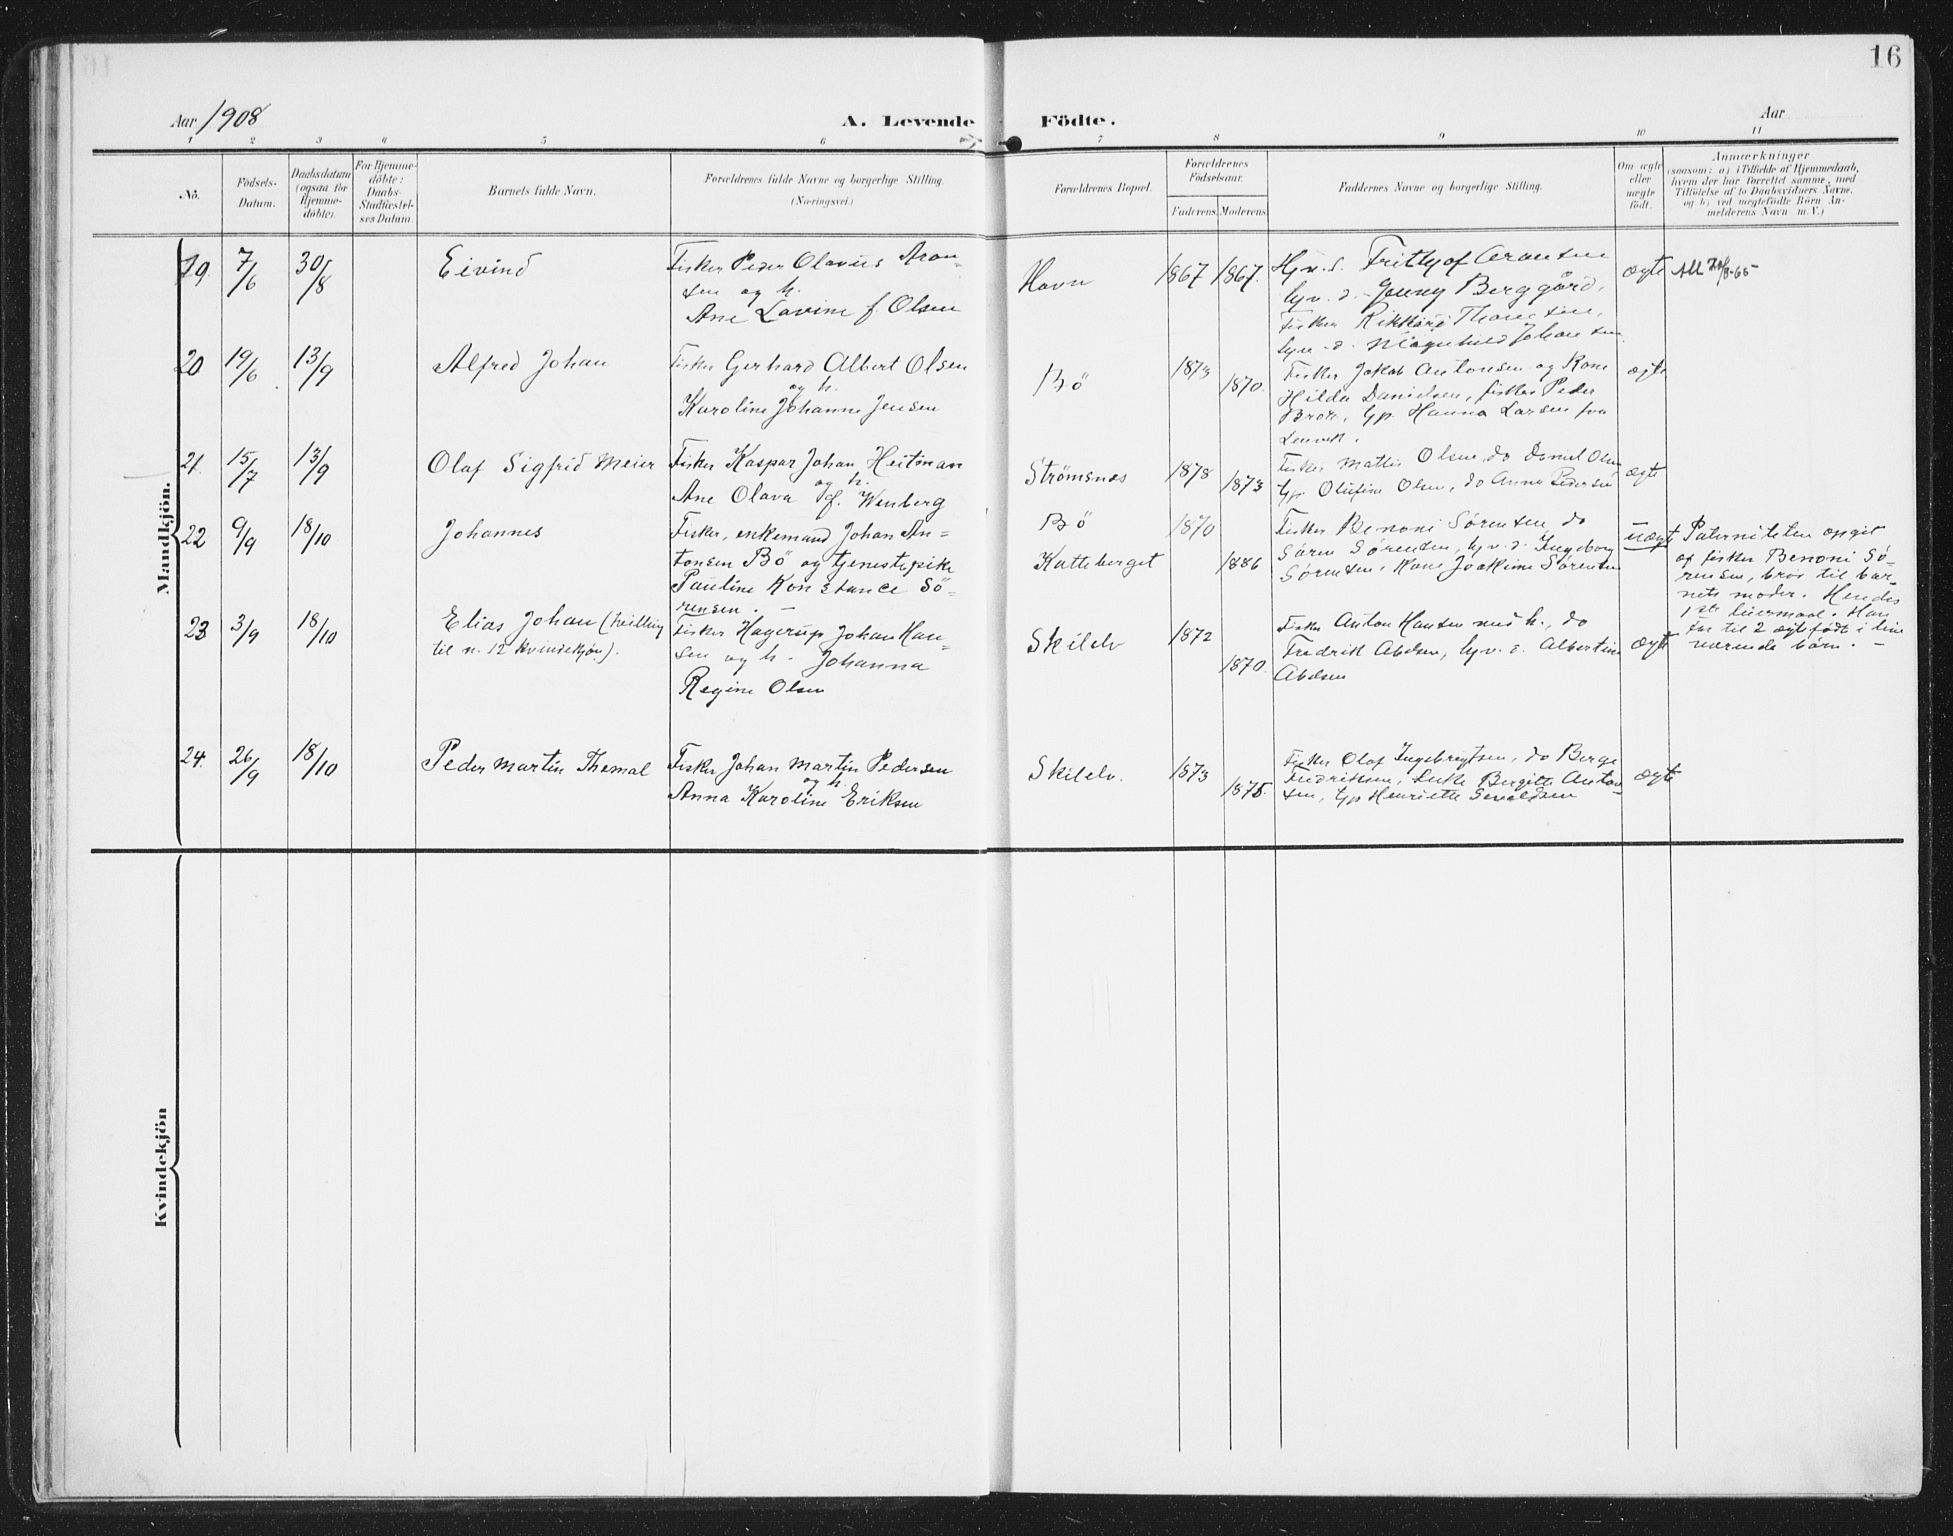 16
Aar 1908
A. Levende Födte.
Aar
1 2 3 4 5 6 7 8 9 10 11
No.
Födsels-Datum.
Daabsdatum (ogsaa for Hjemme-döbte).
For Hjemme-döbte: Daabs-Stadfæstel-ses Datum.
Barnets fulde Navn.
Forældrenes fulde Navne og borgerlige Stilling. (Næringsvei.)
Forældrenes Bopæl.
Forældrenes Födselsaar.
Faderens. Moderens.
Faddernes Navne og borgerlige Stilling.
Om ægte eller uægte födt.
Anmærkninger
(saasom: a) i Tilfælde af Hjemmedaab, hvem der har forrettet samme, med Tilföielse af to Daabsvidners Navne, og b) ved uægtefödte Börn An-melderens Navn m. V.)
Mandkjön.
19 7/6 30/8 Eivind
Fisker Peder Olavus Aron-
sen og h.
Ane Lavine f. Olsen
Havn 1867 1867.
Hjv. s. Fritjof Aronsen
hjv. d. Jenny Berggård,
fisker Rikkard
hjv. d. Magnhild Johansen
ægte
20 19/6 13/9 Alfred Johan
Fisker Gerhard Albert Olsen
og h.
Karoline Johanne Jensen
Bö 1873 1870.
Fisker Jakob Antonsen og Kone
Hilda Danielsen, fisker Peder
Brox, Gp. Hanna Larsen fra
Lenvik.
ægte
21. 15/7 13/9 Olaf Sigfrid Meier
Fisker Kaspar Johan Heitman
og h.
Ane Olava f. Wenberg
Strömsnes 1878 1873
Fisker Mattis Olsen, do Daniel Olsen
Gp. Olufine Olsen, do Anna Pedersen
ægte
22 9/9 18/10 Johannes
Fisker, enkemand Johan An-
tonsen Bö og tjenestepike
Pauline Konstance Sö-
rensen. —
Bö
Katteberget
1870 1886
Fisker Benoni Sörensen, do
Sören Sörensen, hjv. d. Ingeborg
Sörensen, Kone Joakime Sörensen
uægt
Paterniteten opgit
af fisker Benoni Sö-
rensen, bror til bar-
nets moder. Hendes
1ste leiermaal. Han
Far til 2 ægtefödte i live
værende börn. —
23 3/9 18/10 Elias Johan (tvilling
til n. 12 kvindekjön).
Fisker Hagerup Johan Han-
sen og h. Johanna
Regine Olsen
Skilelv 1872 1870.
Fisker Anton Hansen med h., do
Fredrik Abelsen, hjv. d. Albertine
Abelsen
ægt
24. 26/9 18/10 Peder Martin Themal
Fisker Johan Martin Pedersen
og h.
Anna Karoline Eriksen
Skilelv. 1873 1875.
Fisker Olaf Ingebrigtsen, do Berge
Fredriksen, Enke Bergitte Anton-
sen, Gp Henriette Sevaldsen
ægt
Kvindekjön